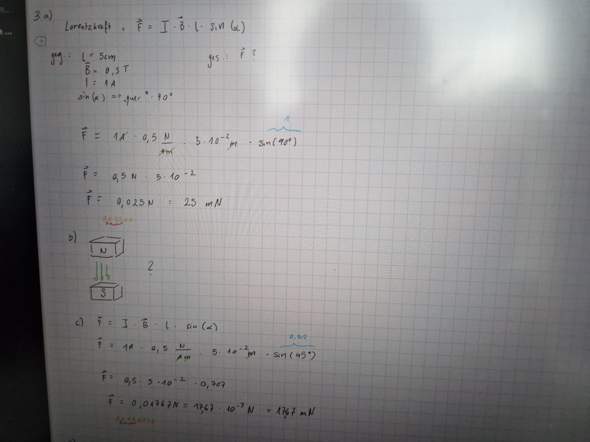 3.a)
Lorentzkraft: F⃗ = I · B⃗ · l · sin (α)
geg.: l = 5cm ges.: F⃗ ?
B⃗ = 0,5T
I = 1A
sin(α) 90°
1
F⃗ = 1A · 0,5 N/Am · 5·10⁻² m · sin(90°)
F⃗ = 0,5 N · 5·10⁻²
F⃗ = 0,025N = 25 mN
b)
N
?
S
c) F⃗ = I · B⃗ · l · sin(α)
0,707
F⃗ = 1A · 0,5 N/Am · 5·10⁻² m · sin(45°)
F⃗ = 0,5 · 5·10⁻² · 0,707
F⃗ = 0,01767N = 17,67 · 10⁻³ N = 17,67 mN